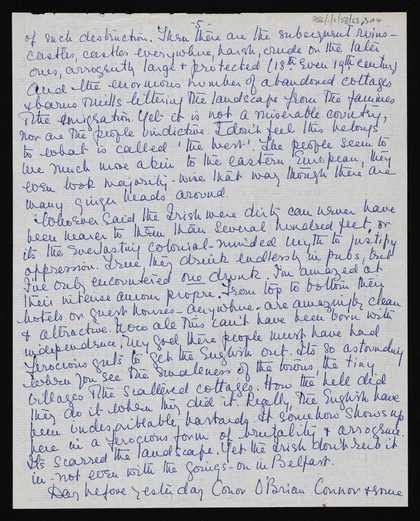 - 5 -
of such destruction. Then there are the subsequent ruins -
castles, castles everywhere, harsh, crude or the later
ones, arrogantly large & protected (18th even 19th century)
and the enormous number of abandoned cottages
& barns & mills littering the landscape from the famines
& the emigration. Yet it is not a miserable country,
nor are the people vindictive. I don't feel this belongs
to what is called 'the west'. The people seem to
be much more akin to the eastern European, they
even look majority-wise that way though there are
many ginger heads around.
Whoever said the Irish were dirty can never have
been nearer to them than several hundred feet, or
its the everlasting colonial-minded myth to justify
oppression. True they drink endlessly in pubs, but
I've only encountered one drunk. I'm amazed at
their intense amour propre. From top to bottom they
hotels or guest houses - anywhere - are amazingly clean
& attractive. Now all this can't have been born with
independence. My god these people must have had
ferocious guts to get the English out. Its so astounding
when you see the smallness of the towns, the tiny
villages & the scattered cottages. How the hell did
they do it when they did it. Really, the English have
been indescribable bastards. It somehow shows up
here in a ferocious form of brutality & arrogance.
Its scarred the landscape. Yet the Irish don't rub it
in - not even with the goings-on in Belfast.
Day before yesterday Conor O'Brian Connor & some